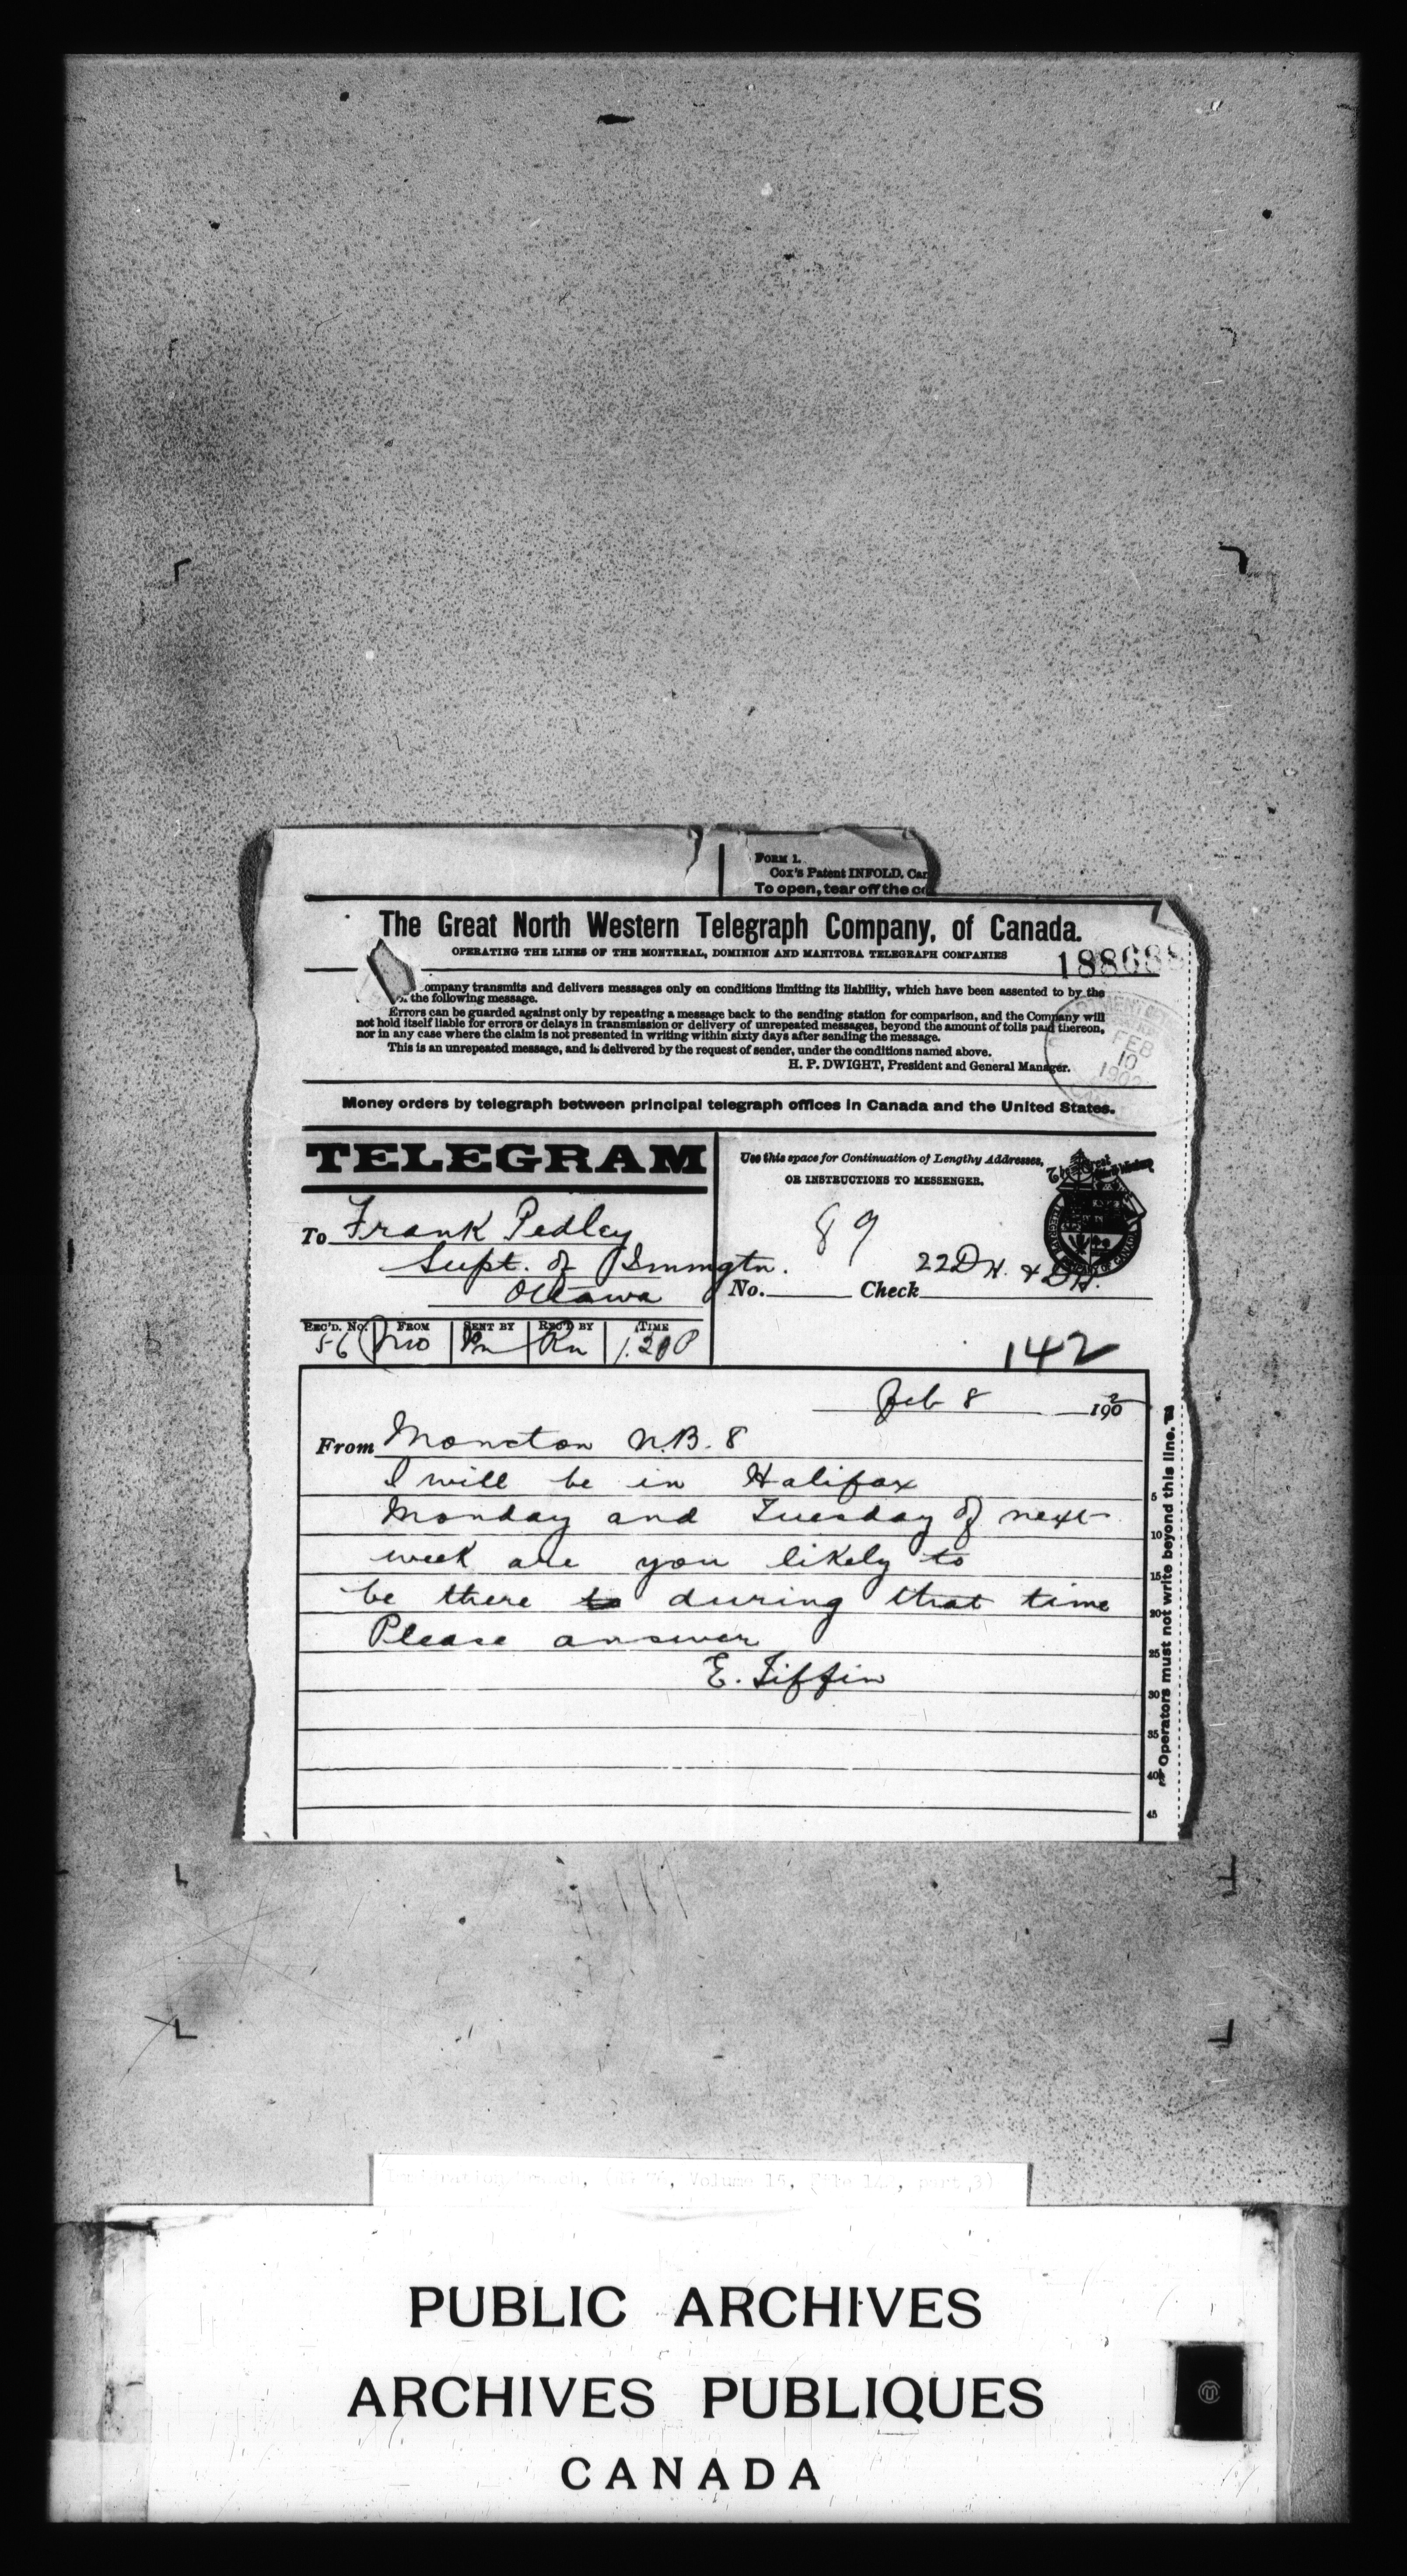 FORM 1.
Cox's Patent INFOLD. Can
To open, tear off the co
The Great North Western Telegraph Company, of Canada.
OPERATING THE LINES OF THE MONTREAL, DOMINION AND MANITOBA TELEGRAPH COMPANIES
188688
ompany transmits and delivers messages only on conditions limiting its liability, which have been assented to by the
the following message.
Errors can be guarded against only by repeating a message back to the sending station for comparison, and the Company will
not hold itself liable for errors or delays in transmission or delivery of unrepeated messages, beyond the amount of tolls paid thereon,
nor in any case where the claim is not presented in writing within sixty days after sending the message.
This is an unrepeated message, and is delivered by the request of sender, under the conditions named above.
H. P. DWIGHT, President and General Manager.
FEB
10
1902
Money orders by telegraph between principal telegraph offices in Canada and the United States.
TELEGRAM
Use this space for Continuation of Lengthy Addresses,
OR INSTRUCTIONS TO MESSENGER.
To Frank Pedley
Supt. of Immgtn.
Ottawa
89
22 DH. & DH.
No. Check
REC'D. No. FROM SENT BY REC'D BY TIME
56 Rn 1.20 P
142
Feb 8 1902
From Moncton N.B. 8
I will be in Halifax
Monday and Tuesday of next
week are you likely to
be there to during that time
Please answer
E. Tiffin
5
10
15
20
25
30
35
40
45
Operators must not write beyond this line.
Immigration Branch, (RG 76, Volume 15, File 142, part 3)
PUBLIC ARCHIVES
ARCHIVES PUBLIQUES
CANADA